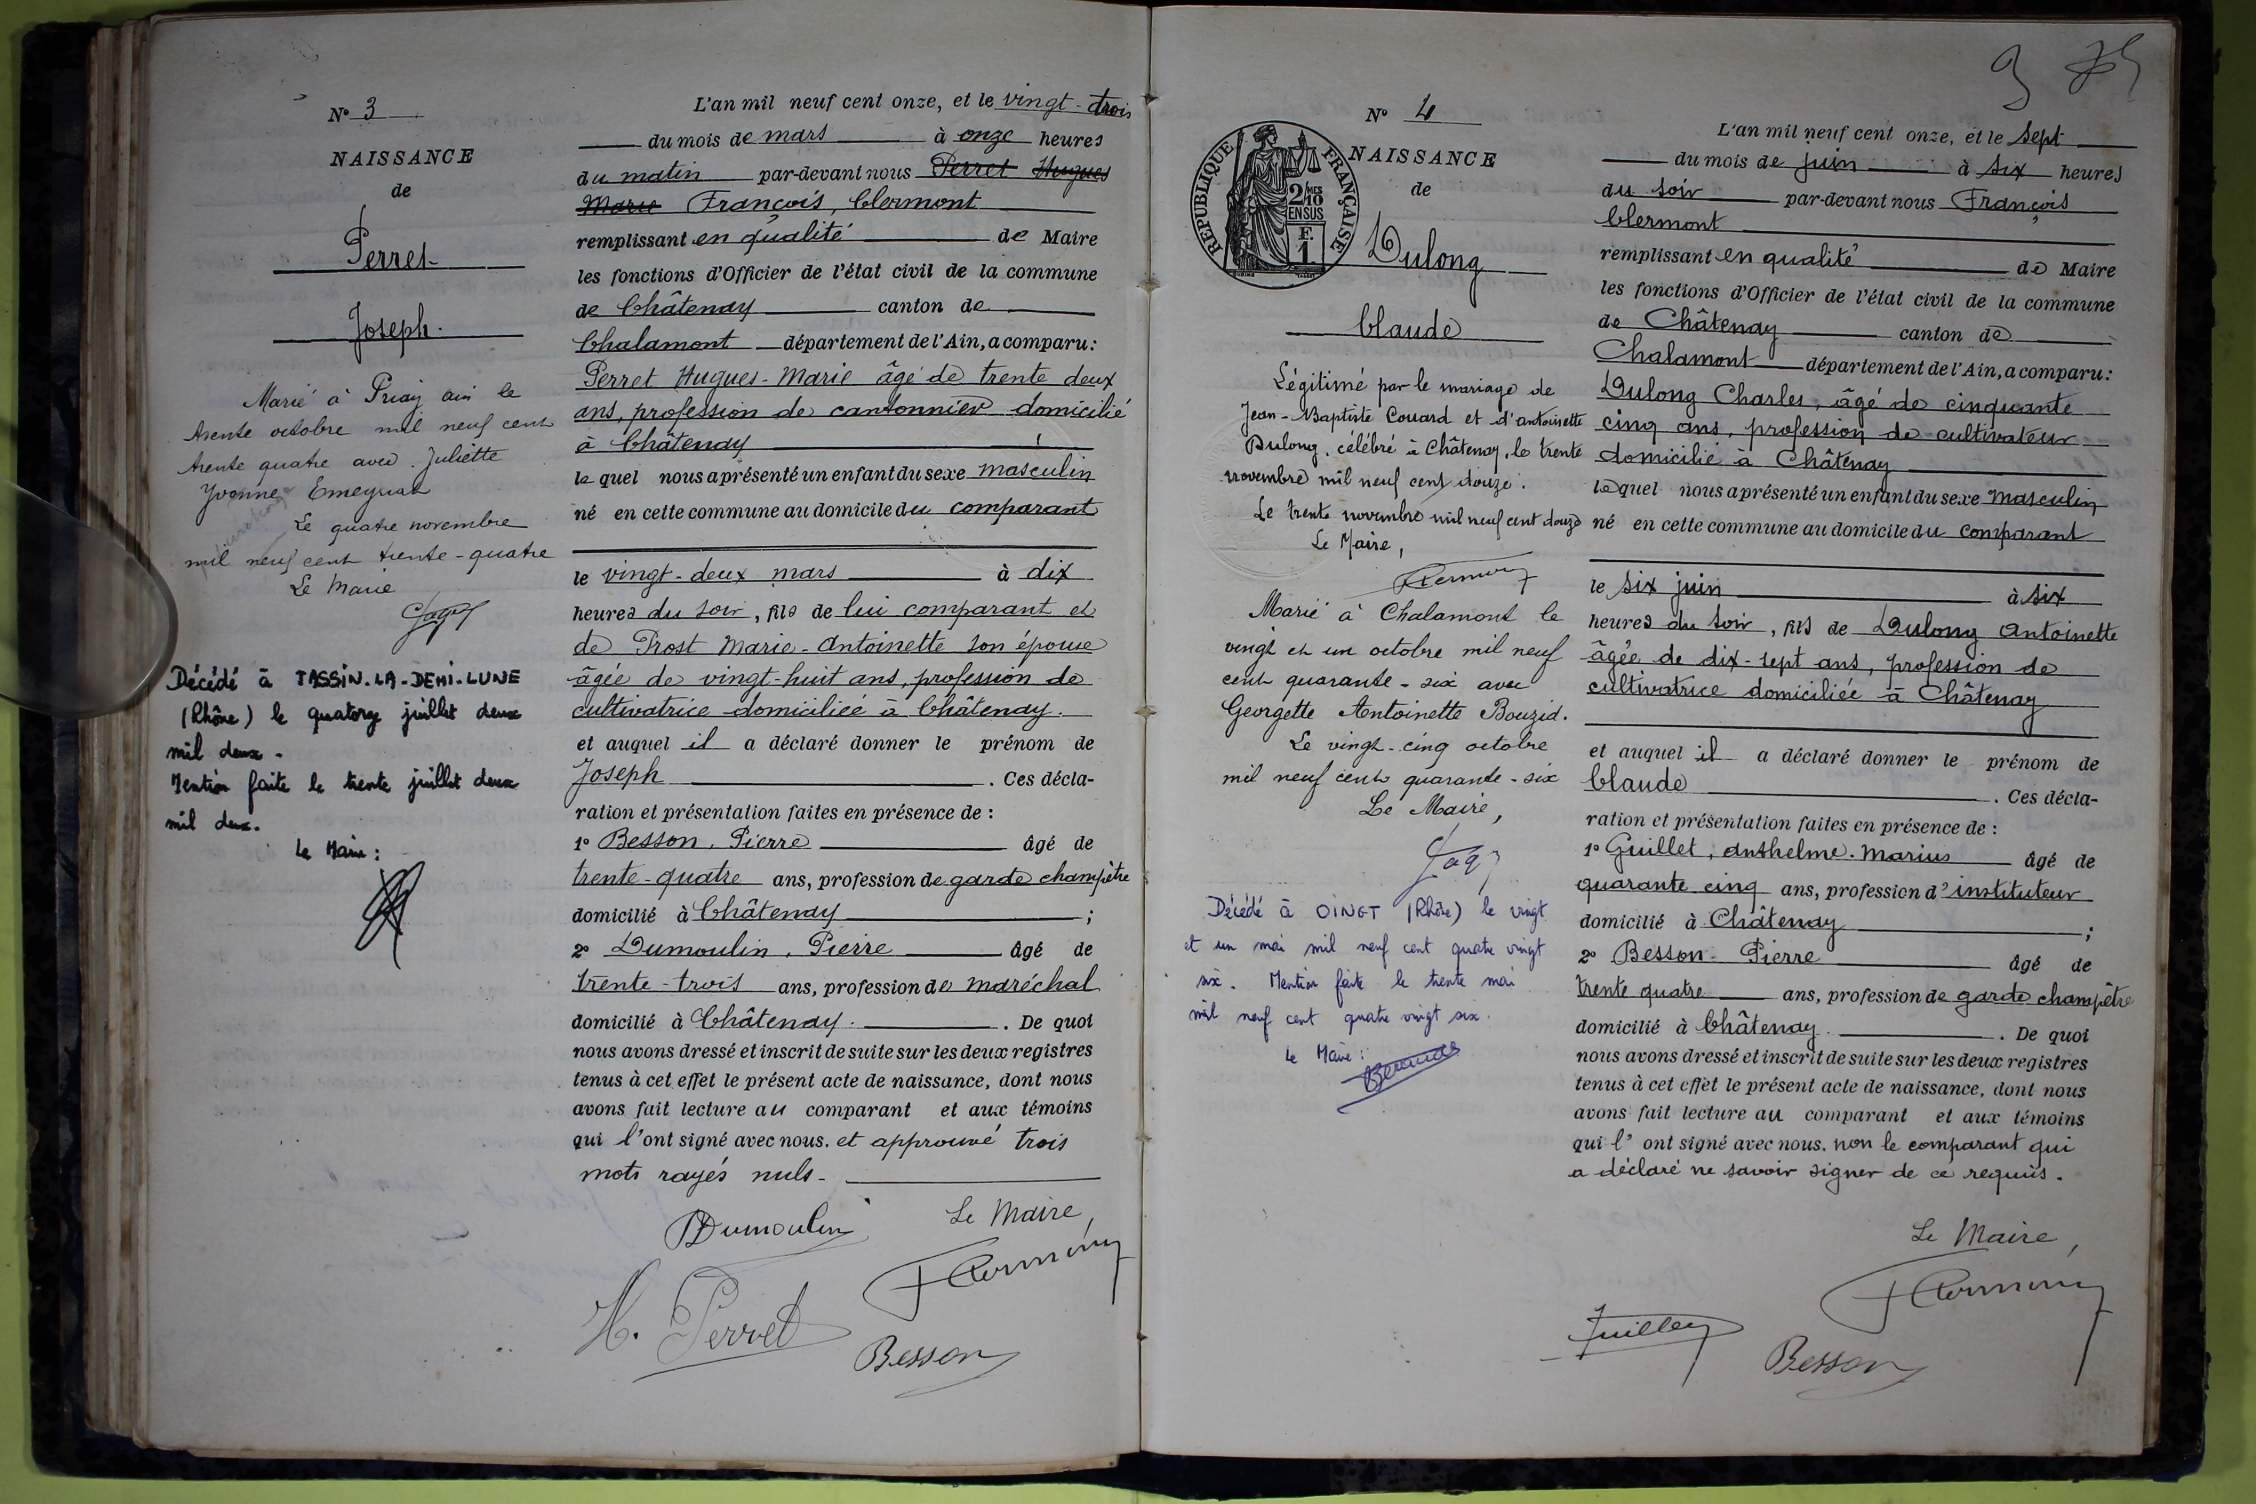 N° 3
NAISSANCE
de
Perret
Joseph.
Marié à Priay ain le
trente octobre mil neuf cent
trente quatre avec Juliette
Yvonne
Le quatre novembre
mil neuf cent trente-quatre
Le Maire
Décédé à TASSIN-LA-DEMI-LUNE
(Rhône) le quatorze juillet deux
mil deux.
Mention faite le trente juillet deux
mil deux.
Le Maire :
L'an mil neuf cent onze, et le vingt-trois
du mois de mars à onze heures
du matin par-devant nous Perret Hugues
Marie François, Clermont
remplissant en qualité de Maire
les fonctions d'Officier de l'état civil de la commune
de Châtenay canton de
Chalamont département de l'Ain, a comparu :
Perret Hugues-Marie âgé de trente deux
ans, profession de cantonnier domicilié
à Châtenay
lequel nous a présenté un enfant du sexe masculin
né en cette commune au domicile du comparant
le vingt-deux mars à dix
heures du soir, fils de lui comparant et
de Prost Marie-Antoinette son épouse
âgée de vingt-huit ans, profession de
cultivatrice domiciliée à Châtenay.
et auquel il a déclaré donner le prénom de
Joseph. Ces décla-
ration et présentation faites en présence de :
1° Besson, Pierre âgé de
trente-quatre ans, profession de garde champêtre
domicilié à Châtenay ;
2° Dumoulin, Pierre âgé de
trente-trois ans, profession de maréchal
domicilié à Châtenay. De quoi
nous avons dressé et inscrit de suite sur les deux registres
tenus à cet effet le présent acte de naissance, dont nous
avons fait lecture au comparant et aux témoins
qui l'ont signé avec nous. et approuvé trois
mots rayés nuls.
PDumoulin Le Maire,
FClermont
H. Perret
Besson
9
N° 4
REPUBLIQUE FRANÇAISE
2/10 MES
EN SUS
F.
1
NAISSANCE
de
Dulong
Claude
Légitimé par le mariage de
Jean-Baptiste Couard et d'Antoinette
Dulong, célébré à Châtenay, le trente
novembre mil neuf cent douze.
Le trente novembre mil neuf cent douze
Le Maire,
FClermont
Marié à Chalamont le
vingt et un octobre mil neuf
cent quarante-six avec
Georgette Antoinette Bouzid.
Le vingt-cinq octobre
mil neuf cent quarante-six
Le Maire,
Décédé à OINGT (Rhône) le vingt
et un mai mil neuf cent quatre vingt
six. Mention faite le trente mai
mil neuf cent quatre vingt six.
Le Maire :
L'an mil neuf cent onze, et le sept
du mois de juin à six heures
du soir par-devant nous François
Clermont
remplissant en qualité de Maire
les fonctions d'Officier de l'état civil de la commune
de Châtenay canton de
Chalamont département de l'Ain, a comparu :
Dulong Charles, âgé de cinquante
cinq ans, profession de cultivateur
domicilié à Châtenay
lequel nous a présenté un enfant du sexe masculin
né en cette commune au domicile du comparant
le six juin à six
heures du soir, fils de Dulong Antoinette
âgée de dix-sept ans, profession de
cultivatrice domiciliée à Châtenay
et auquel il a déclaré donner le prénom de
Claude. Ces décla-
ration et présentation faites en présence de :
1° Guillet, Anthelme-Marius âgé de
quarante cinq ans, profession d'instituteur
domicilié à Châtenay ;
2° Besson Pierre âgé de
trente quatre ans, profession de garde champêtre
domicilié à Châtenay. De quoi
nous avons dressé et inscrit de suite sur les deux registres
tenus à cet effet le présent acte de naissance, dont nous
avons fait lecture au comparant et aux témoins
qui l'ont signé avec nous. non le comparant qui
a déclaré ne savoir signer de ce requis.
Le Maire,
FClermont
Guillet
Besson